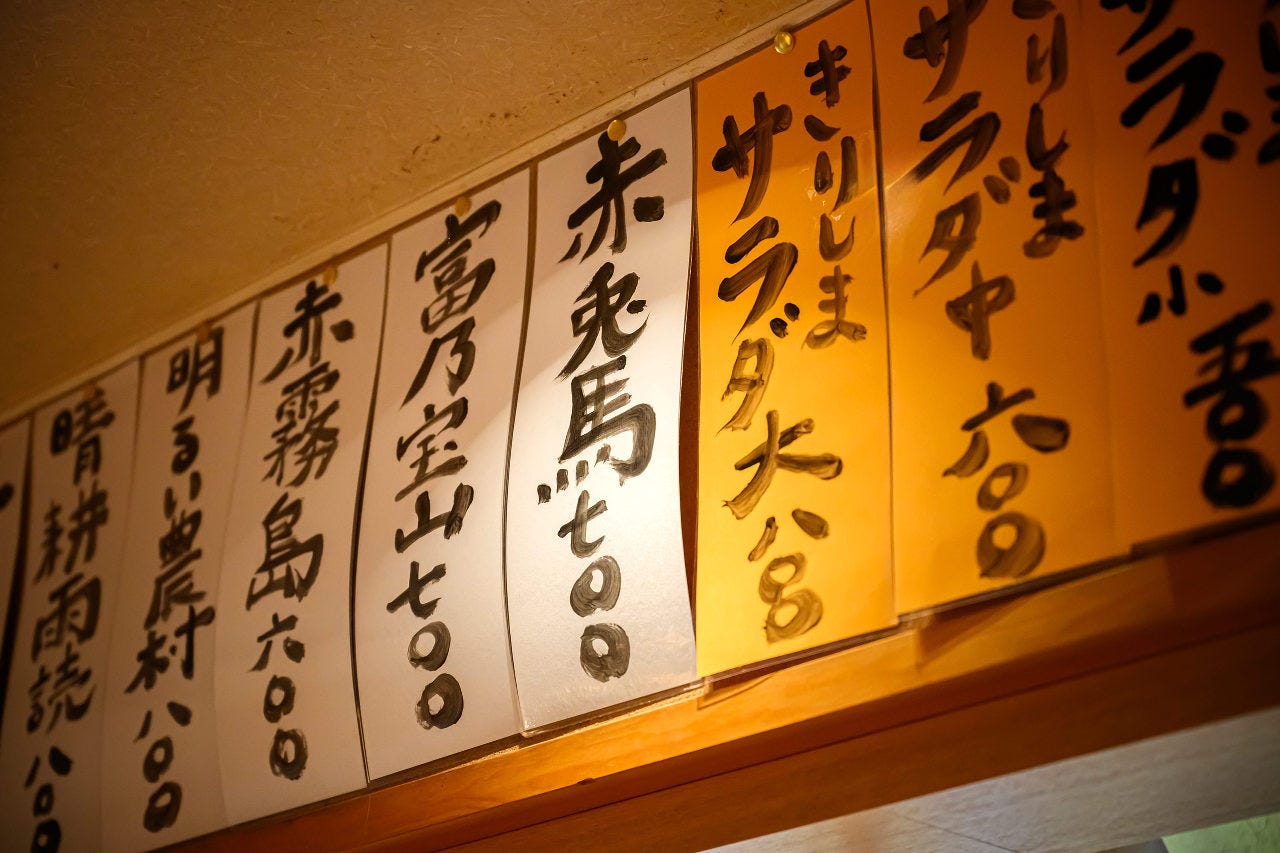 サラダ小 五〇〇
きりしま
サラダ中 六〇〇
きりしま
サラダ大 八〇〇
赤兎馬 七〇〇
富乃宝山 七〇〇
赤霧島 六〇〇
明るい農村 八〇〇
晴耕雨読 八〇〇